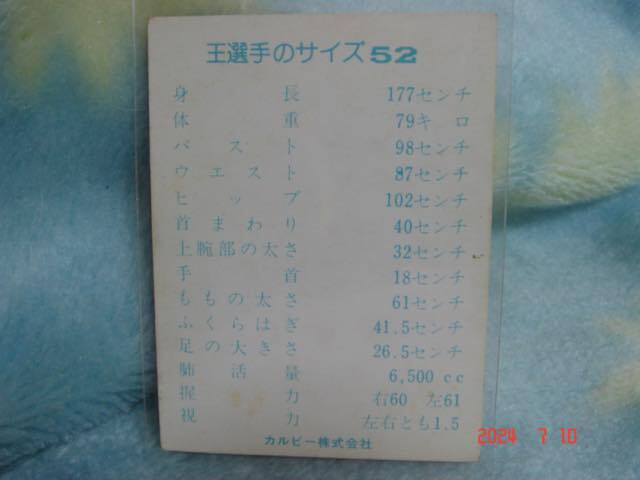 王選手のサイズ52
身長 177センチ
体重 79キロ
バスト 98センチ
ウエスト 87センチ
ヒップ 102センチ
首まわり 40センチ
上腕部の太さ 32センチ
手首 18センチ
ももの太さ 61センチ
ふくらはぎ 41.5センチ
足の大きさ 26.5センチ
肺活量 6,500 cc
握力 右60 左61
視力 左右とも1.5
カルビー株式会社
2024 7 10